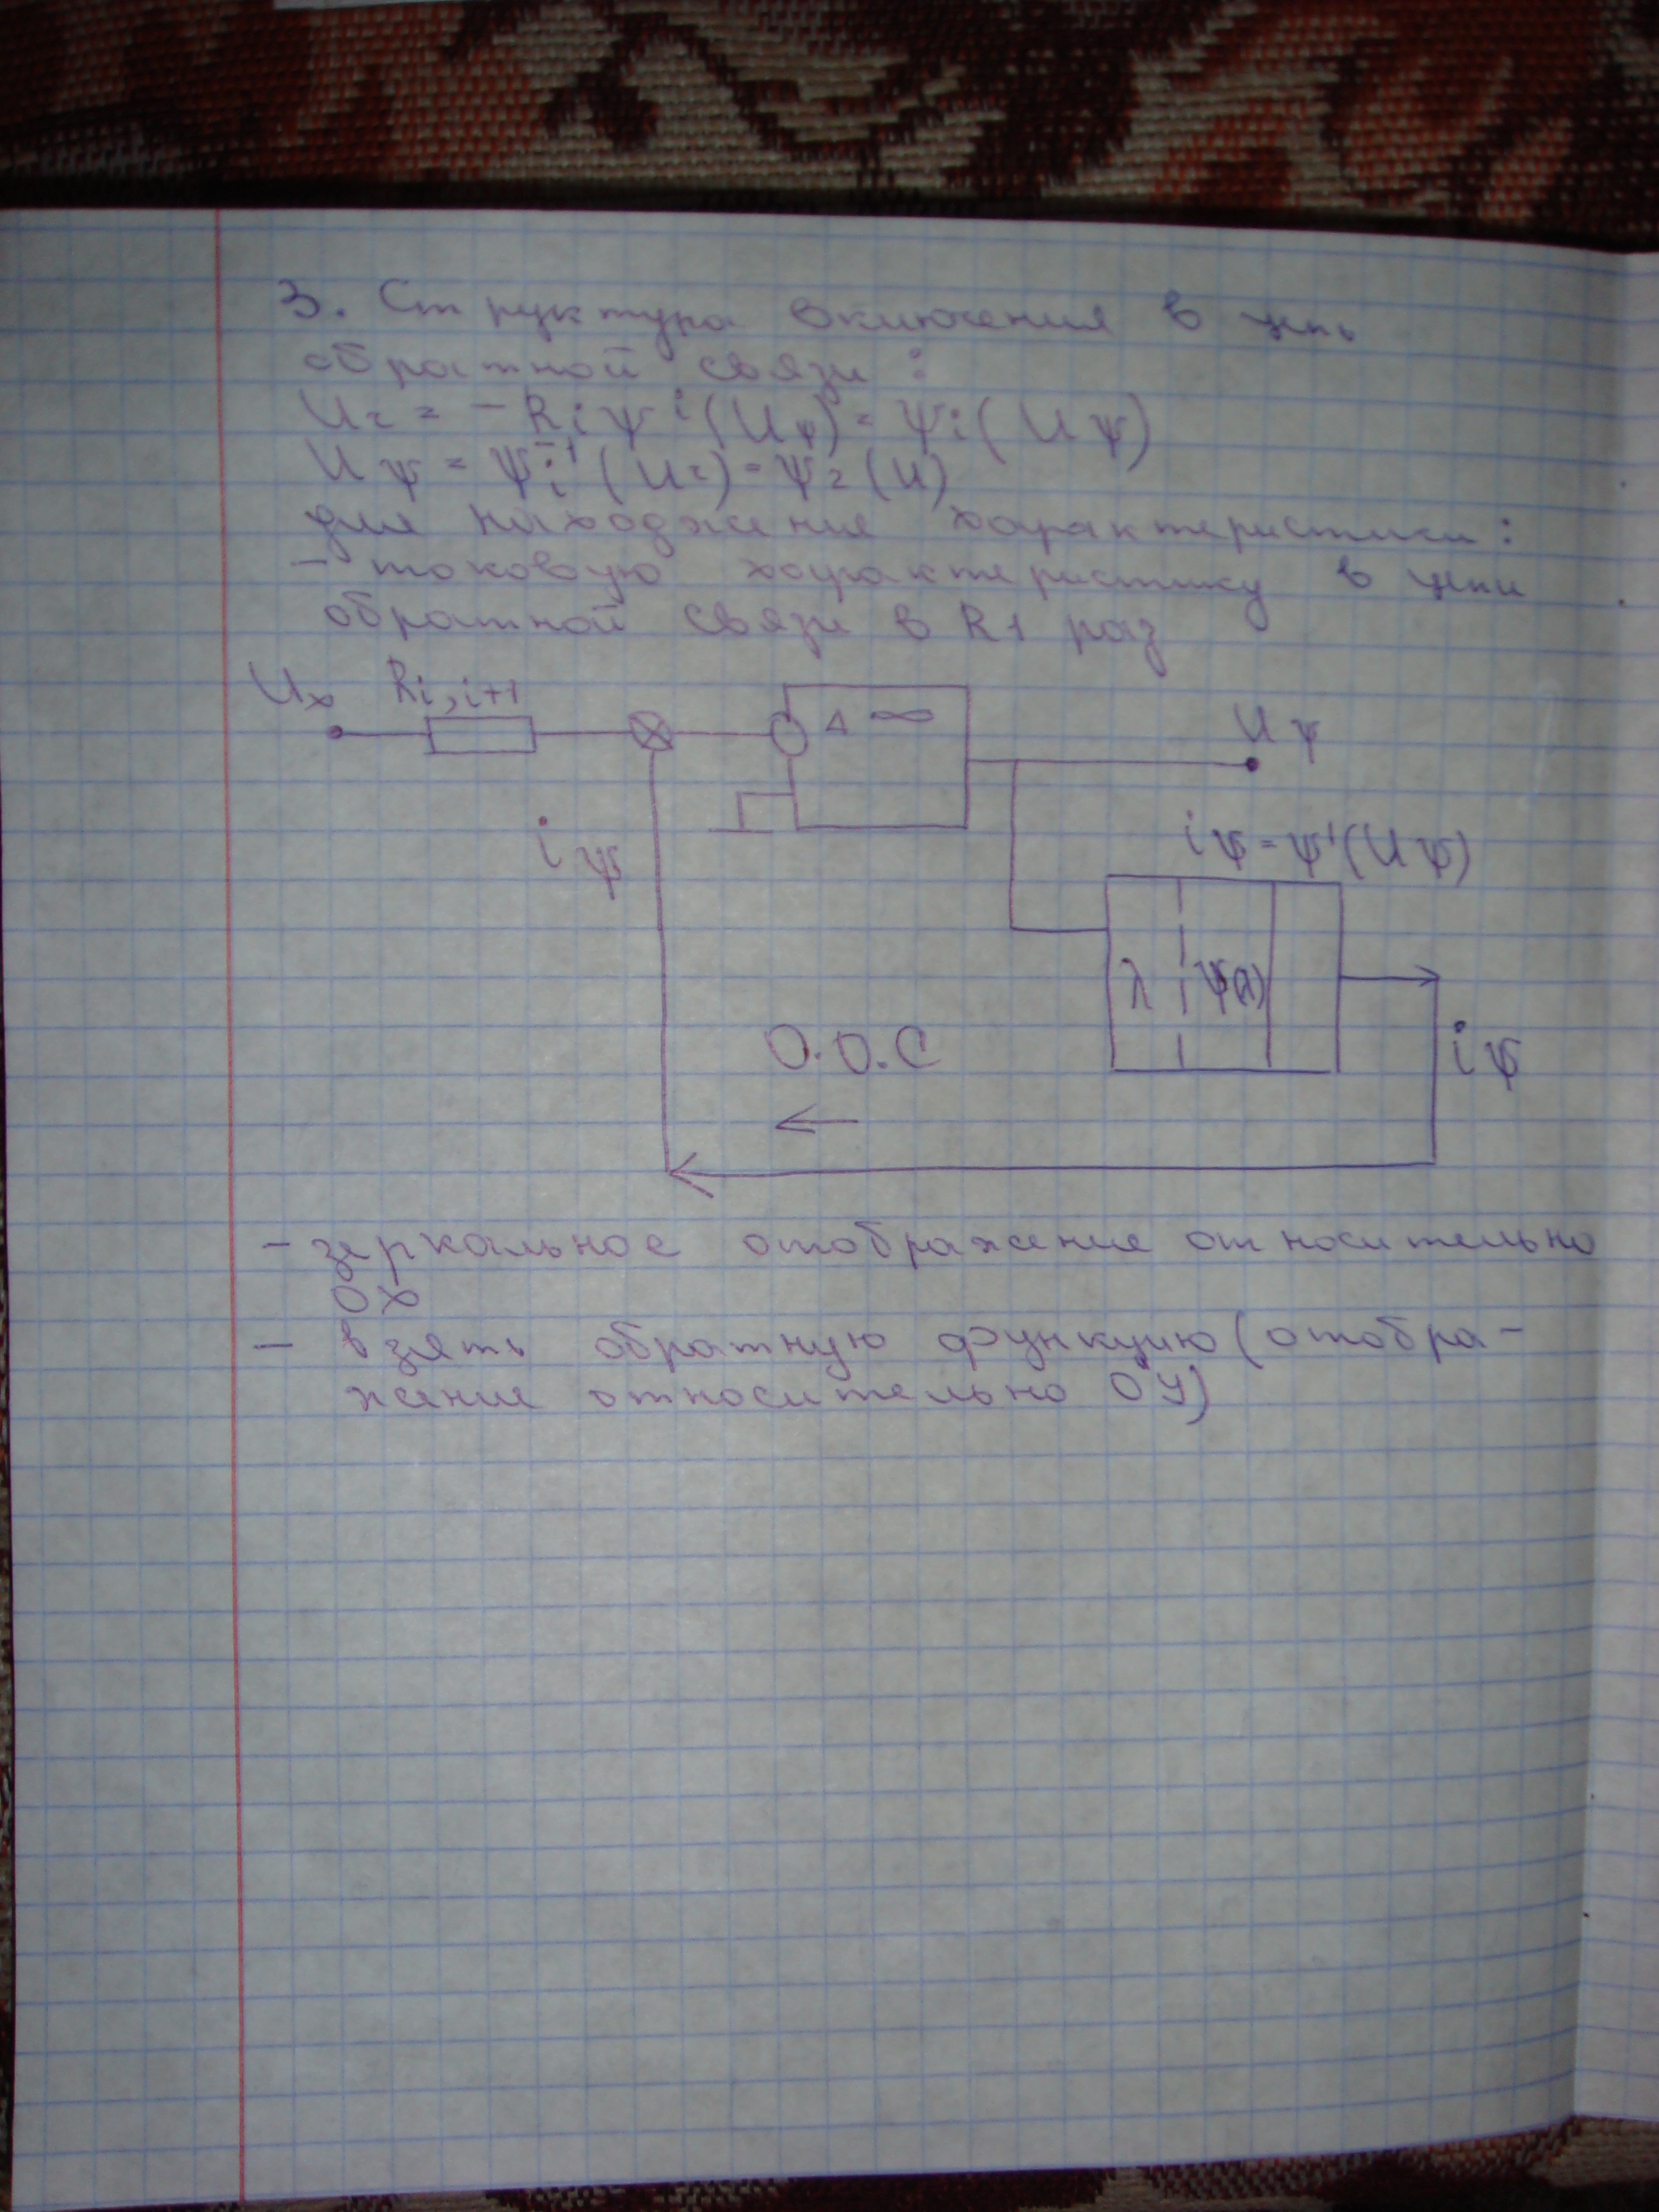 3. Структура включения в цепь
обратной связи:
Uг = - Ri ψ i (Uψ) = ψi (Uψ)
Uψ = ψi⁻¹ (Uг) = ψ2 (U)
для нахождение характеристики:
- токовую характеристику в цепи
обратной связи в R1 раз
Ux Ri,i+1
Δ ∞
Uψ
iψ
iψ = ψ'(Uψ)
λ ψ(λ)
О.О.С
iψ
- зеркальное отображение относительно
ОХ
- взять обратную функцию (отобра-
жение относительно ОУ)